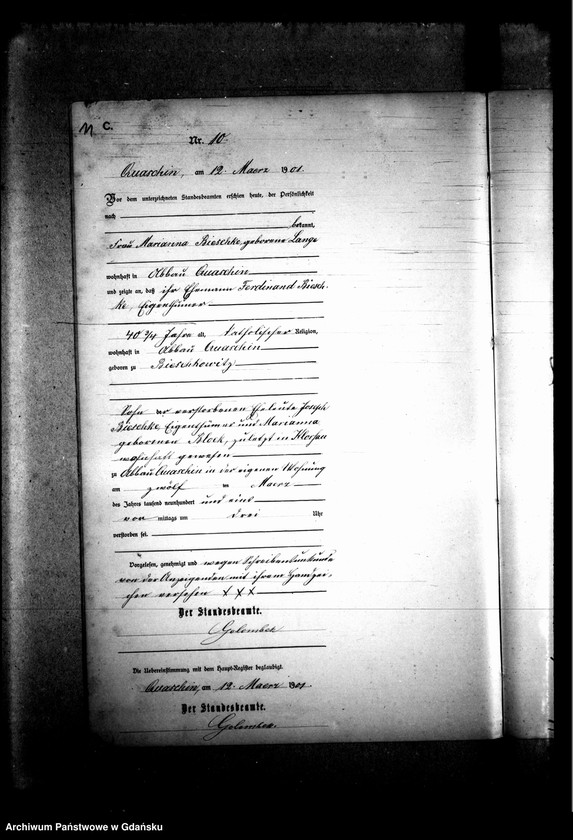 C.
Nr. 10.
Quaschin, am 12. Maerz 1901.
Vor dem unterzeichneten Standesbeamten erschien heute, der Persönlichkeit
nach
bekannt,
Frau Marianna Bieschke, geborene Lange
wohnhaft in Abbau Quaschin
und zeigte an, daß ihr Ehemann Ferdinand Biesch-
ke, Eigenthümer
40 3/4 Jahre alt, katholischer Religion,
wohnhaft in Abbau Quaschin
geboren zu Bieschkowitz
Sohn der verstorbenen Eheleute Joseph
Bieschke, Eigenthümer und Marianna
geborenen Block, zuletzt in
wohnhaft gewesen
zu Abbau Quaschin in der eigenen Wohnung
am zwölf ten Maerz
des Jahres tausend neunhundert und eins
vor mittags um drei Uhr
verstorben sei.
Vorgelesen, genehmigt und wegen Schreibensunkunde
von der Anzeigenden mit ihrem Handzei-
chen versehen X X X
Der Standesbeamte.
Golombek
Die Uebereinstimmung mit dem Haupt-Register beglaubigt.
Quaschin, am 12. Maerz 1901.
Der Standesbeamte.
Golombek.
Archiwum Państwowe w Gdańsku